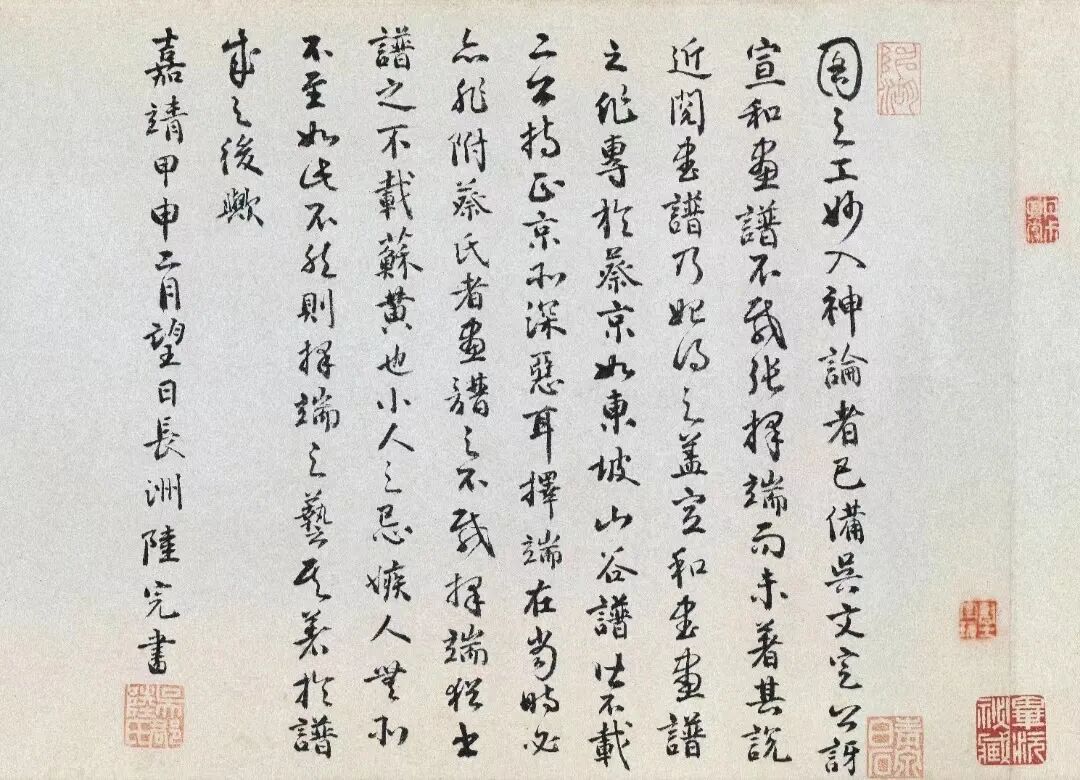 圖之工妙入神論者已備吳文定公訝
宣和畫譜不載張擇端而未著其說
近閱書譜乃始得之蓋宣和書畫譜
之作專於蔡京如東坡山谷譜皆不載
二公持正京所深惡耳擇端在當時必
亦非附蔡氏者畫譜之不載擇端猶書
譜之不載蘇黃也小人之忌嫉人無所
不至如此不然則擇端之藝其著於譜
成之後歟
嘉靖甲申二月望日長洲陸完書
畢沅秘藏